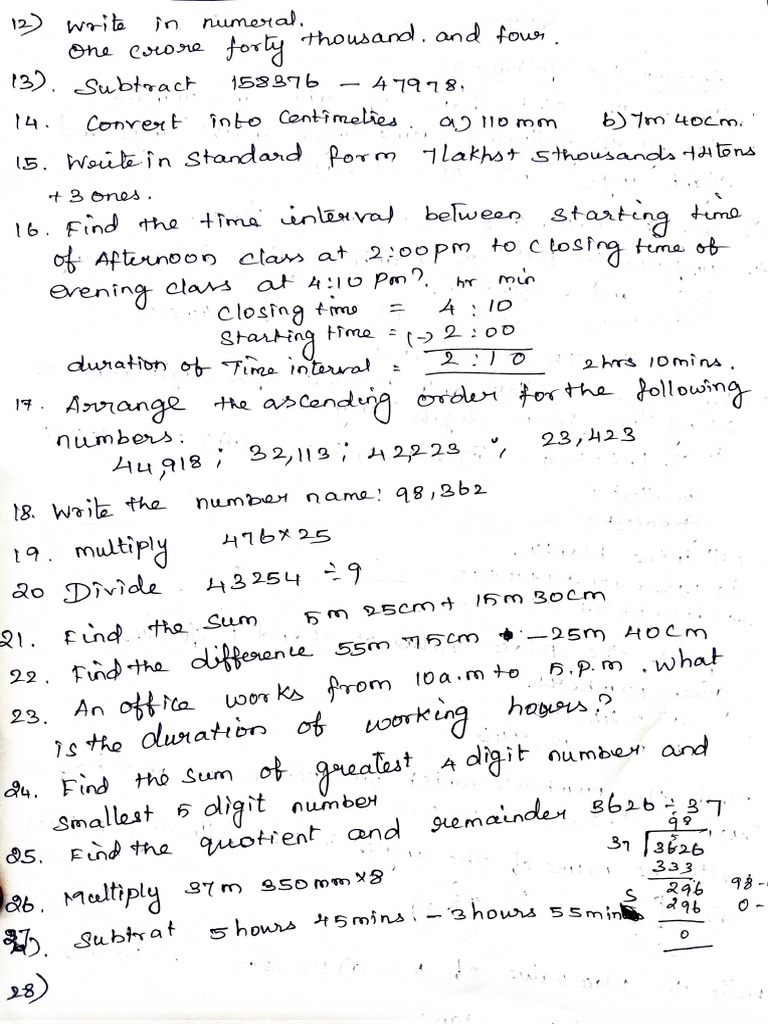 12) Write in numeral.
One crore forty thousand. and four.
13). Subtract 158376 - 47978.
14. Convert into Centimeties. a) 110 mm b) 7m 40cm.
15. Write in Standard form 7lakhs+ 5thousands +4tens
+ 3 ones.
16. Find the time interval between starting time
of Afternoon class at 2:00pm to closing time of
evening class at 4:10 pm? hr min
closing time = 4 : 10
Starting time = (-) 2 : 00
duration of Time interval = 2 : 10 2hrs 10mins.
17. Arrange the ascending order for the following
numbers.
44,918 ; 32,113 ; 42,223 ; 23,423
18. Write the number name: 98,362
19. multiply 476×25
20 Divide 43254 ÷9
21. Find the sum 5m 25cm + 15m 30cm
22. Find the difference 55m 75cm -25m 40cm
23. An office works from 10a.m to 5.p.m. what
is the duration of working hours?
24. Find the sum of greatest 4 digit number and
smallest 5 digit number
25. Find the quotient and remainder 3626 ÷ 37
98
5
37 3626
333
296 98-
296 0-
0
26. Multiply 37m 350mm×8
27). Subtrat 5hours 45mins. - 3hours 55mins
28)